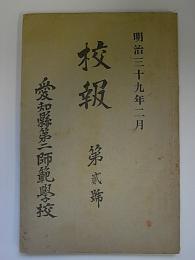 明治三十九年二月
校報
第貳號
愛知縣第二師範學校